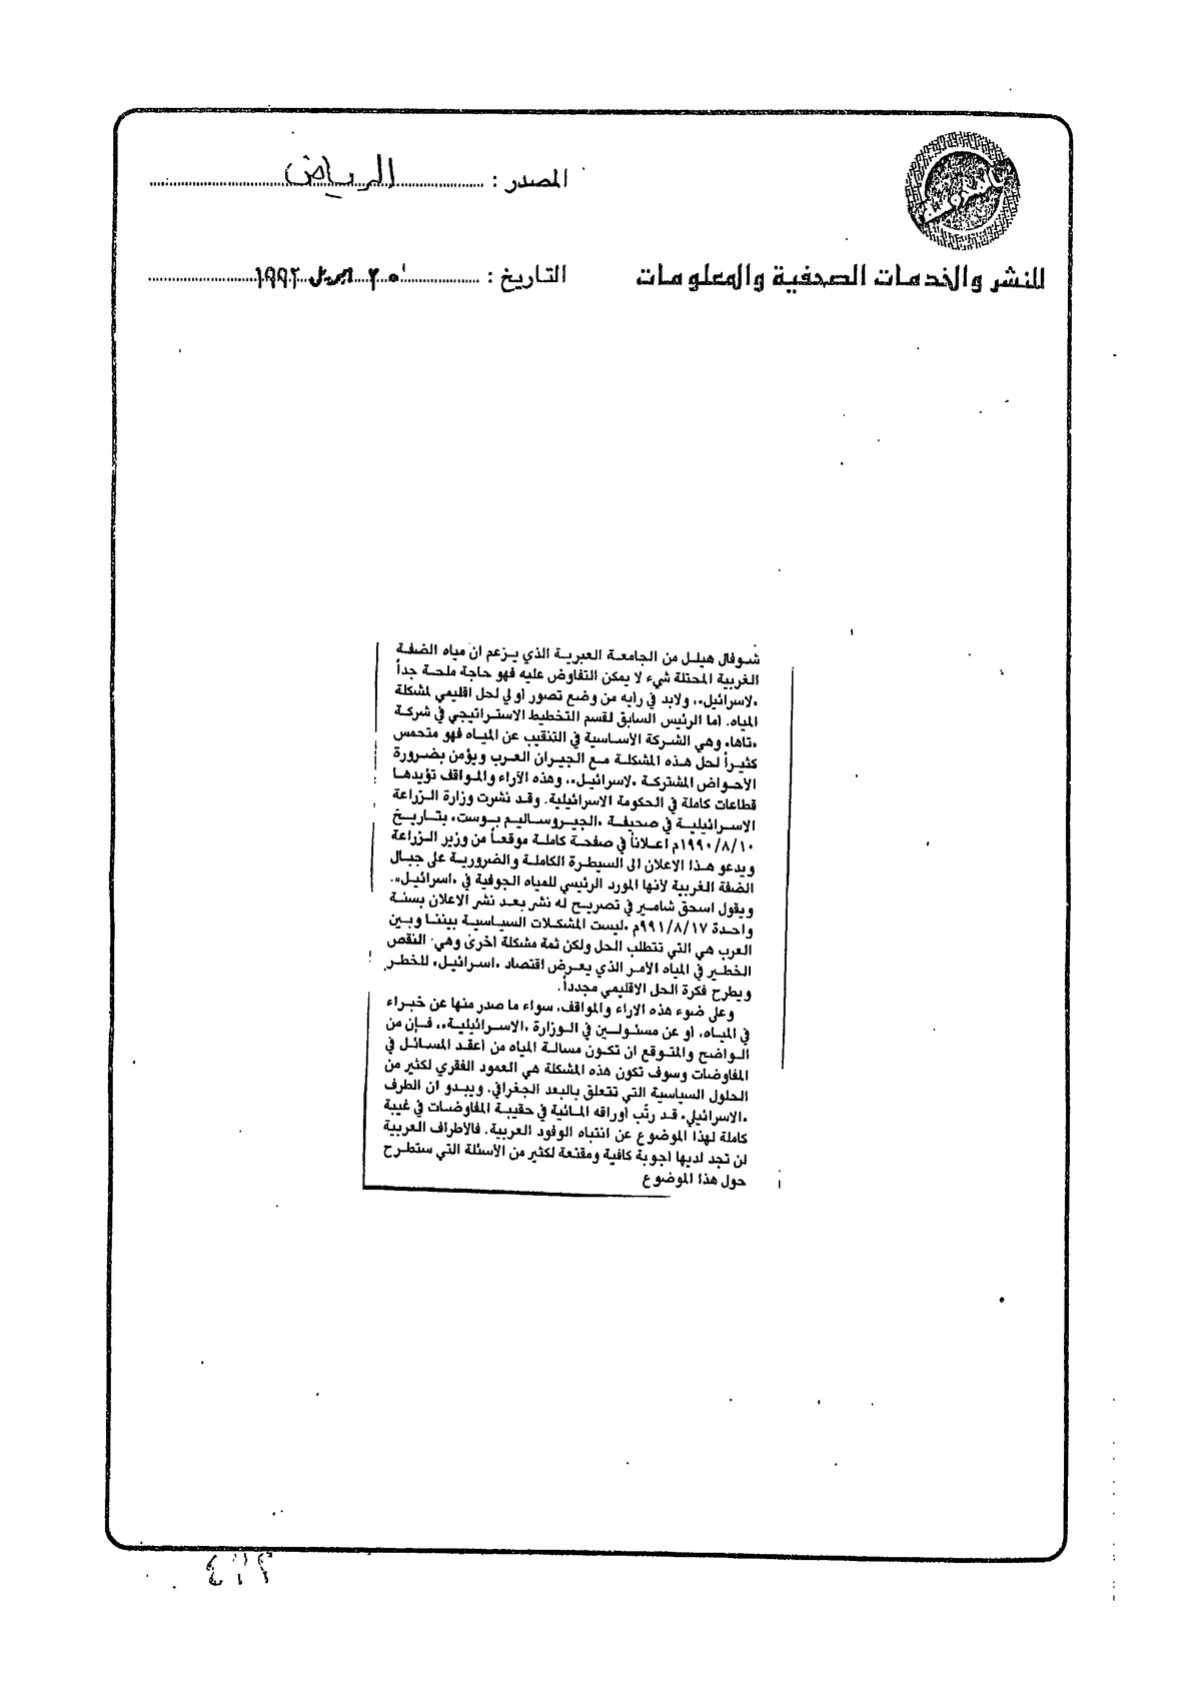 المصدر : الرياض
للنشر والخدمات الصحفية والمعلومات
التاريخ : ٢٠ ابريل ١٩٩٢
شوفال هيلل من الجامعة العبرية الذي يزعم ان مياه الضفة
الغربية المحتلة شيء لا يمكن التفاوض عليه فهو حاجة ملحة جداً
«لاسرائيل»، ولابد في رايه من وضع تصور اولي لحل اقليمي لمشكلة
المياه. اما الرئيس السابق لقسم التخطيط الاستراتيجي في شركة
«تاها» وهي الشركة الأساسية في التنقيب عن المياه فهو متحمس
كثيراً لحل هذه المشكلة مع الجيران العرب ويؤمن بضرورة
الأحواض المشتركة «لاسرائيل»، وهذه الآراء والمواقف تؤيدها
قطاعات كاملة في الحكومة الاسرائيلية. وقد نشرت وزارة الزراعة
الاسرائيلية في صحيفة «الجيروساليم بوست» بتاريخ
١٩٩٠/٨/١٠م اعلاناً في صفحة كاملة موقعاً من وزير الزراعة
ويدعو هذا الاعلان الى السيطرة الكاملة والضرورية على جبال
الضفة الغربية لأنها المورد الرئيسي للمياه الجوفية في «اسرائيل».
ويقول اسحق شامير في تصريح له نشر بعد نشر الاعلان بسنة
واحدة ٩٩١/٨/١٧م «ليست المشكلات السياسية بيننا وبين
العرب هي التي تتطلب الحل ولكن ثمة مشكلة اخرى وهي النقص
الخطير في المياه الأمر الذي يعرض اقتصاد «اسرائيل» للخطر
ويطرح فكرة الحل الاقليمي مجدداً.
وعلى ضوء هذه الاراء والمواقف، سواء ما صدر منها عن خبراء
في المياه، او عن مسئولين في الوزارة «الاسرائيلية»، فإن من
الواضح والمتوقع ان تكون مسالة المياه من أعقد المسائل في
المفاوضات وسوف تكون هذه المشكلة هي العمود الفقري لكثير من
الحلول السياسية التي تتعلق بالبعد الجغرافي، ويبدو ان الطرف
«الاسرائيلي» قد رتّب أوراقه المائية في حقيبة المفاوضات في غيبة
كاملة لهذا الموضوع عن انتباه الوفود العربية. فالأطراف العربية
لن تجد لديها اجوبة كافية ومقنعة لكثير من الأسئلة التي ستطرح
حول هذا الموضوع